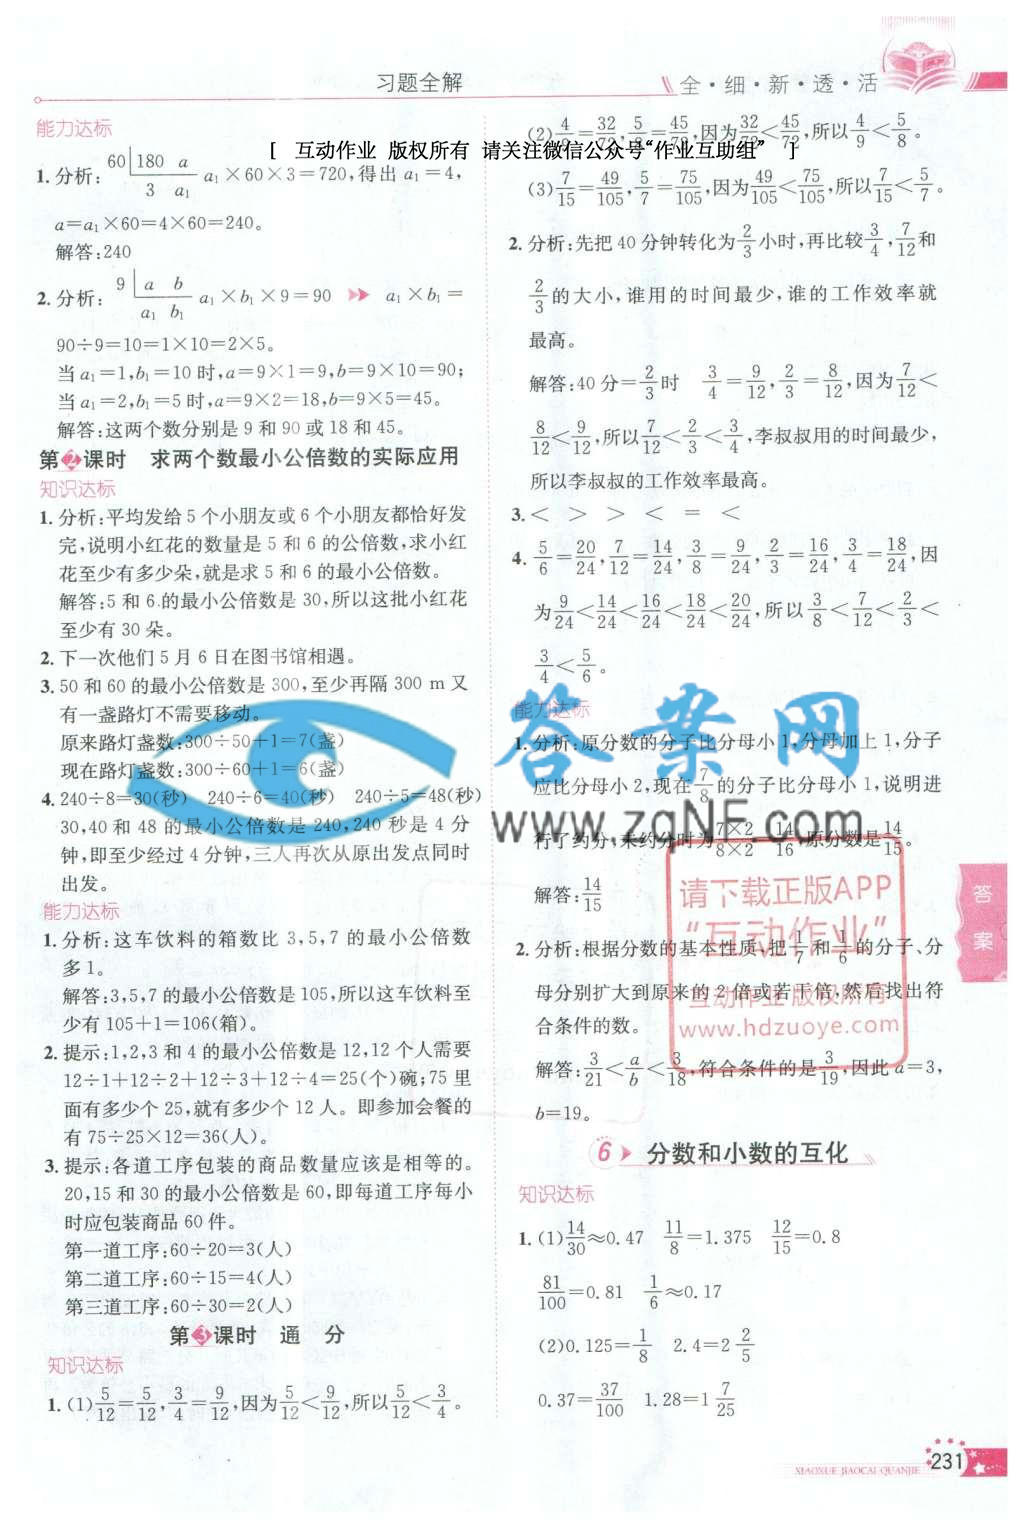 习题全解
全·细·新·透·活
能力达标
[ 互动作业 版权所有 请关注微信公众号“作业互助组” ]
1.分析: 60 180 a
3 a₁ a₁×60×3=720,得出 a₁=4,
a=a₁×60=4×60=240。
解答:240
2.分析: 9 a b
a₁ b₁ a₁×b₁×9=90 a₁×b₁=
90÷9=10=1×10=2×5。
当 a₁=1,b₁=10 时,a=9×1=9,b=9×10=90;
当 a₁=2,b₁=5 时,a=9×2=18,b=9×5=45。
解答:这两个数分别是 9 和 90 或 18 和 45。
第2课时 求两个数最小公倍数的实际应用
知识达标
1.分析:平均发给 5 个小朋友或 6 个小朋友都恰好发
完,说明小红花的数量是 5 和 6 的公倍数,求小红
花至少有多少朵,就是求 5 和 6 的最小公倍数。
解答:5 和 6 的最小公倍数是 30,所以这批小红花
至少有 30 朵。
2.下一次他们 5 月 6 日在图书馆相遇。
3.50 和 60 的最小公倍数是 300,至少再隔 300 m 又
有一盏路灯不需要移动。
原来路灯盏数:300÷50+1=7(盏)
现在路灯盏数:300÷60+1=6(盏)
4.240÷8=30(秒) 240÷6=40(秒) 240÷5=48(秒)
30,40 和 48 的最小公倍数是 240,240 秒是 4 分
钟,即至少经过 4 分钟,三人再次从原出发点同时
出发。
能力达标
1.分析:这车饮料的箱数比 3,5,7 的最小公倍数
多 1。
解答:3,5,7 的最小公倍数是 105,所以这车饮料至
少有 105+1=106(箱)。
2.提示:1,2,3 和 4 的最小公倍数是 12,12 个人需要
12÷1+12÷2+12÷3+12÷4=25(个)碗;75 里
面有多少个 25,就有多少个 12 人。即参加会餐的
有 75÷25×12=36(人)。
3.提示:各道工序包装的商品数量应该是相等的。
20,15 和 30 的最小公倍数是 60,即每道工序每小
时应包装商品 60 件。
第一道工序:60÷20=3(人)
第二道工序:60÷15=4(人)
第三道工序:60÷30=2(人)
第3课时 通 分
知识达标
1.(1)5/12=5/12,3/4=9/12,因为5/12<9/12,所以5/12<3/4。
(2)4/9=32/72,5/8=45/72,因为32/72<45/72,所以4/9<5/8。
(3)7/15=49/105,5/7=75/105,因为49/105<75/105,所以7/15<5/7。
2.分析:先把 40 分钟转化为2/3小时,再比较3/4,7/12和
2/3的大小,谁用的时间最少,谁的工作效率就
最高。
解答:40 分=2/3时 3/4=9/12,2/3=8/12,因为7/12<
8/12<9/12,所以7/12<2/3<3/4,李叔叔用的时间最少,
所以李叔叔的工作效率最高。
3.< > > < = <
4.5/6=20/24,7/12=14/24,3/8=9/24,2/3=16/24,3/4=18/24,因
为9/24<14/24<16/24<18/24<20/24,所以3/8<7/12<2/3<
3/4<5/6。
能力达标
1.分析:原分数的分子比分母小 1,分母加上 1,分子
应比分母小 2,现在7/8的分子比分母小 1,说明进
行了约分,未约分时为7×2/8×2=14/16,原分数是14/15。
解答:14/15
2.分析:根据分数的基本性质,把1/7和1/6的分子、分
母分别扩大到原来的 2 倍或若干倍,然后找出符
合条件的数。
解答:3/21<a/b<3/18,符合条件的是3/19,因此 a=3,
b=19。
6 分数和小数的互化
知识达标
1.(1)14/30≈0.47 11/8=1.375 12/15=0.8
81/100=0.81 1/6≈0.17
(2)0.125=1/8 2.4=2 2/5
0.37=37/100 1.28=1 7/25
答案
答案网
www.zqNF.com
请下载正版APP
“互动作业”
互动作业 版权所有
www.hdzuoye.com
XIAOXUE JIAOCAI QUANJIE
231